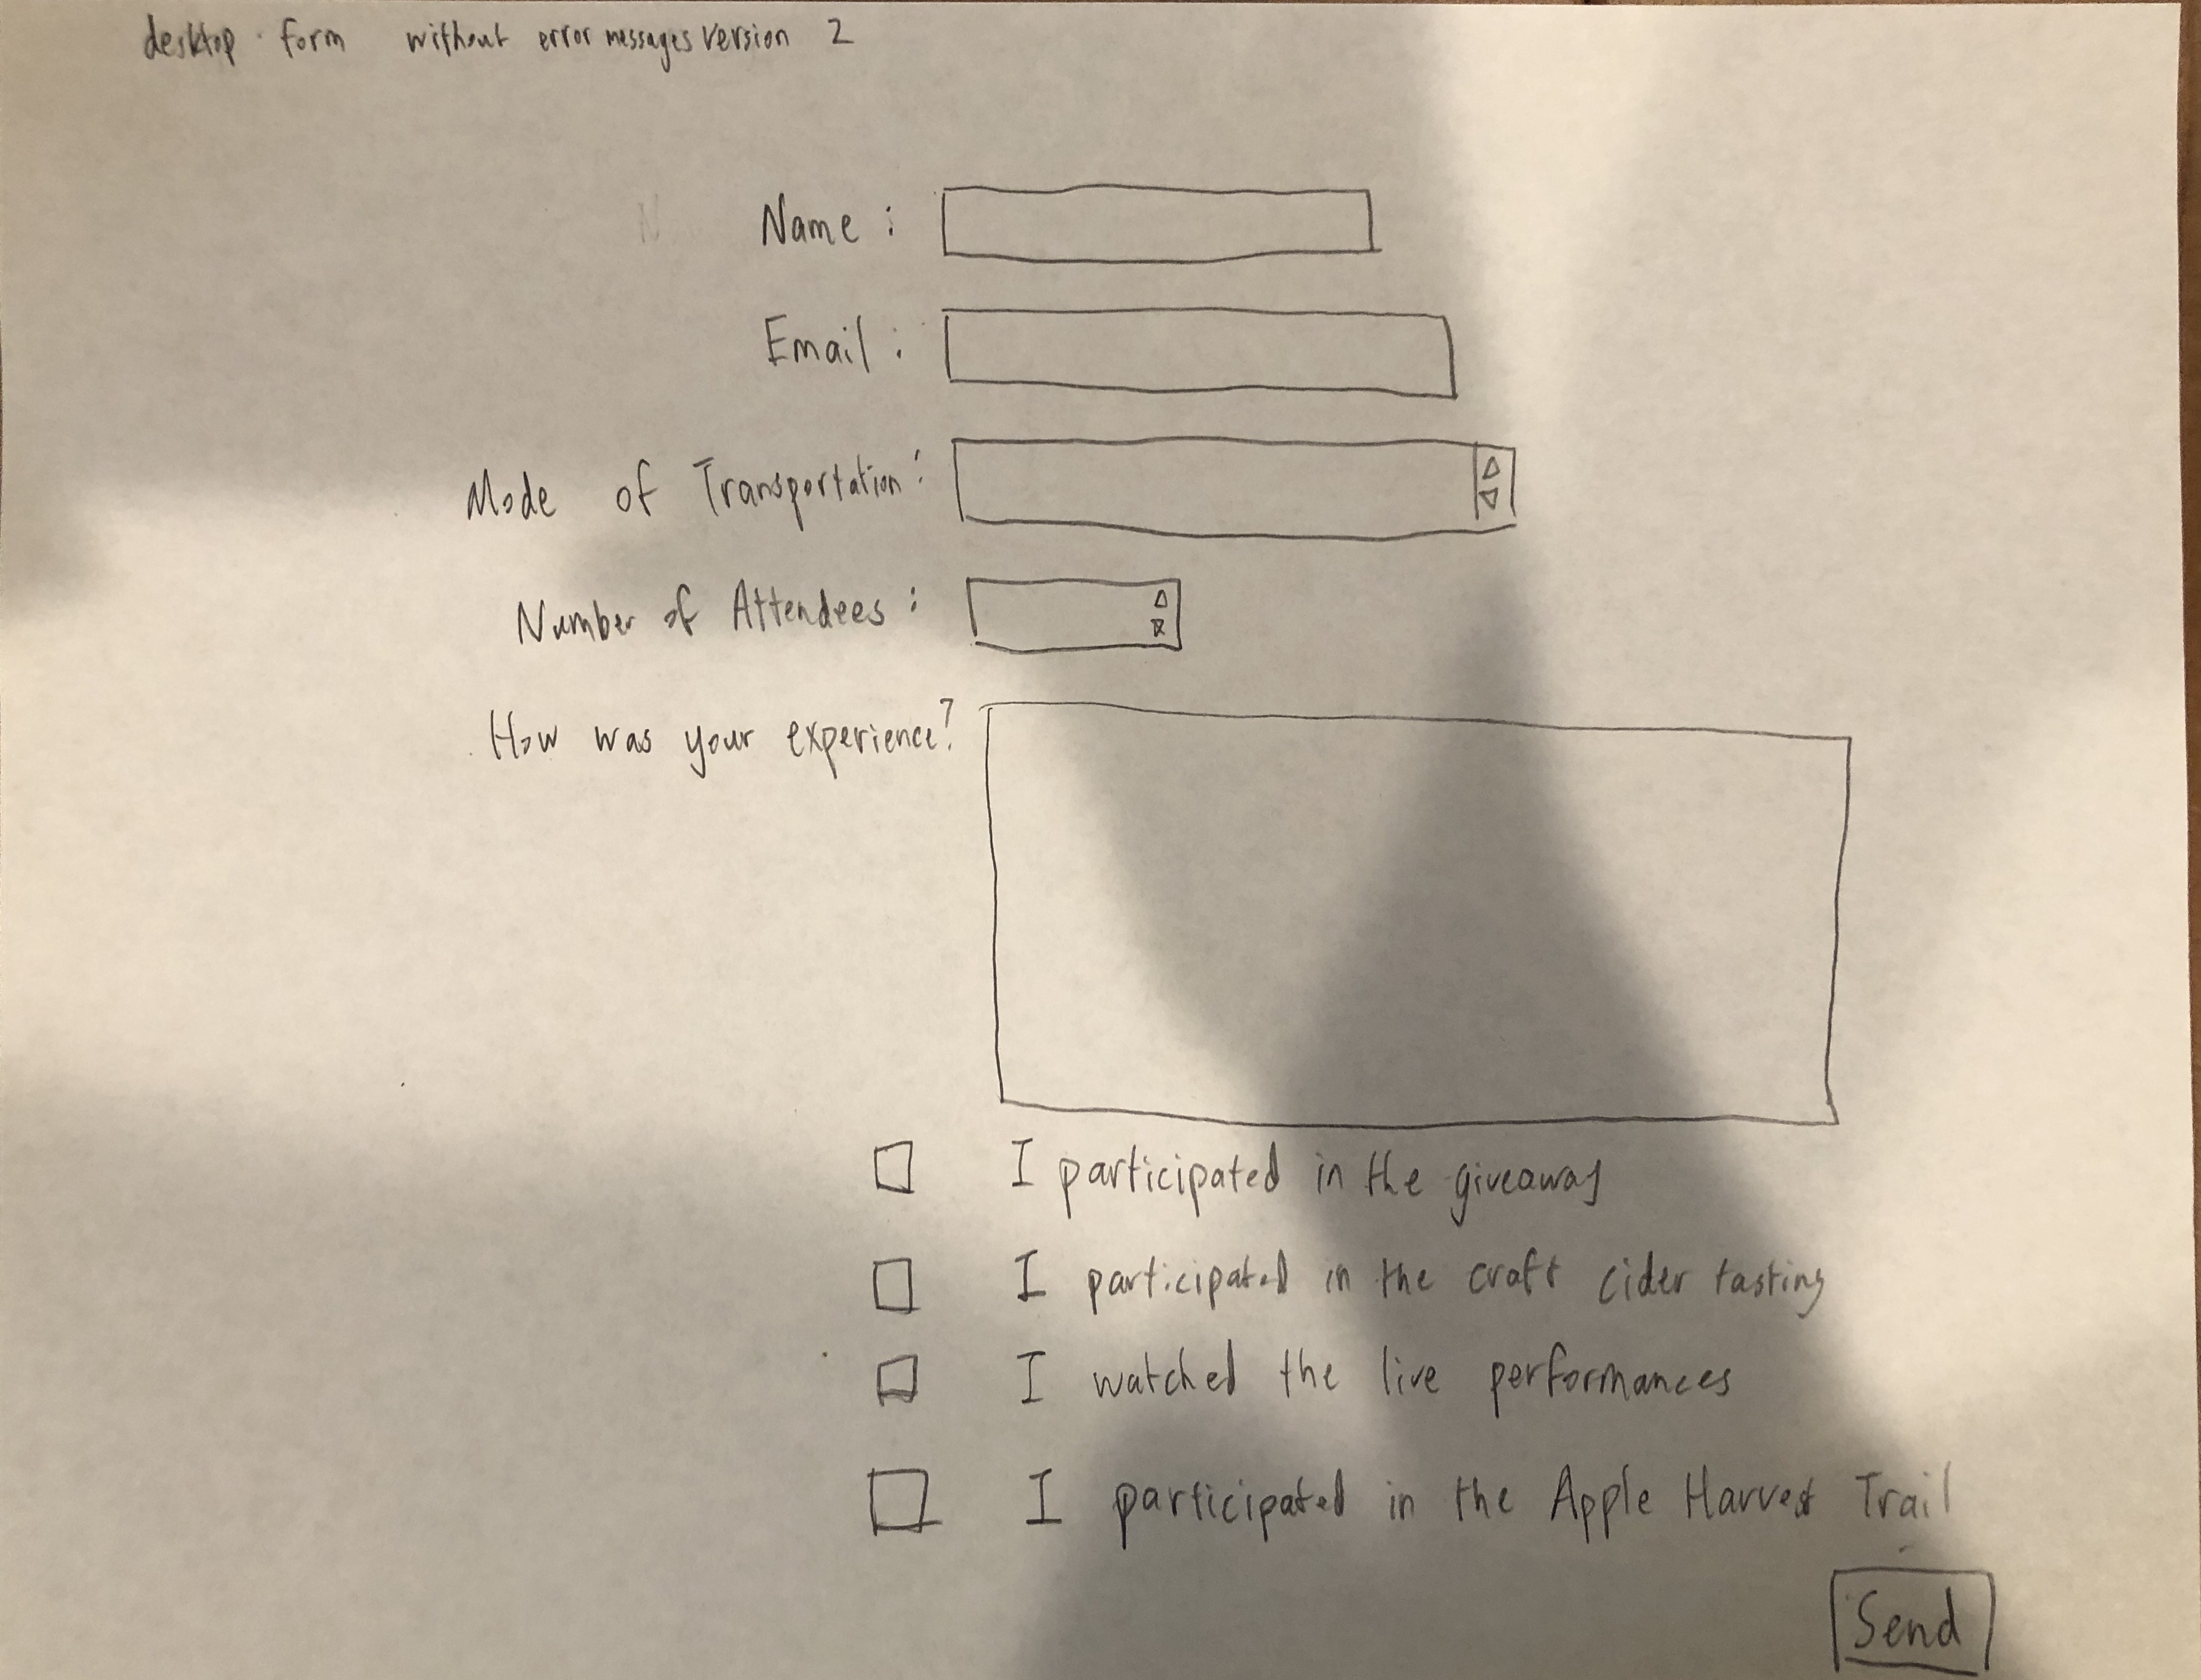 desktop form without error messages version 2
N
Name :
Email :
Mode of Transportation :
Number of Attendees :
How was your experience?
I participated in the giveaway
I participated in the craft cider tasting
I watched the live performances
I participated in the Apple Harvest Trail
Send